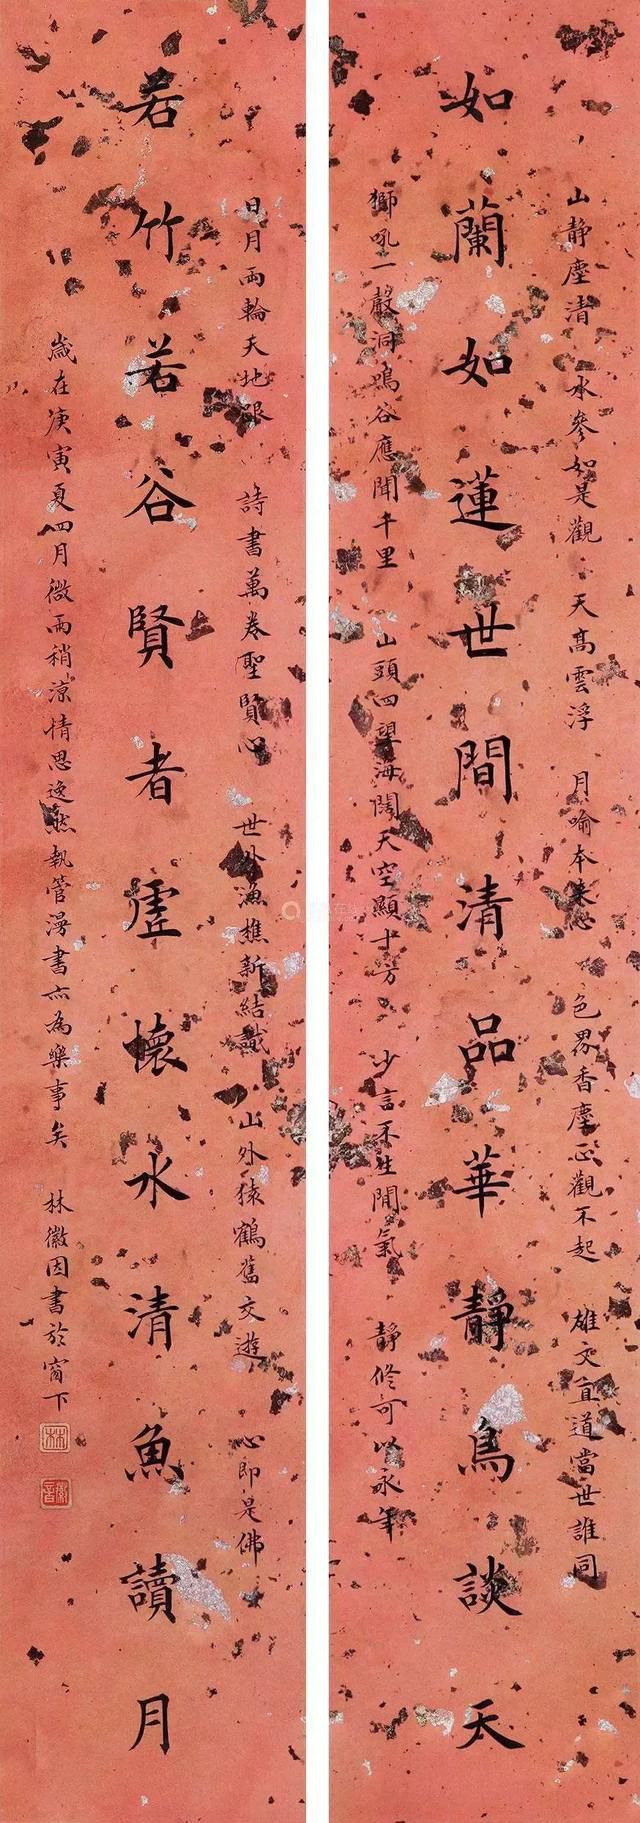 山靜塵清 水參如是觀 天高雲浮 月喻本来心 色界香塵正觀不起 雄文直道當世誰同
如蘭如蓮世間清品華靜鳥談天
獅吼一聲洞鳴谷應聞千里 山頭四望海闊天空顯十方 少言不生閒氣 靜修可以永年
日月兩輪天地眼 詩書萬卷聖賢心 世外漁樵新結識 山外猿鶴舊交遊 心即是佛
若竹若谷賢者虛懷水清魚讀月
歲在庚寅夏四月微雨稍涼情思逸然執管漫書亦為樂事矣 林徽因書於窗下
林
徽音